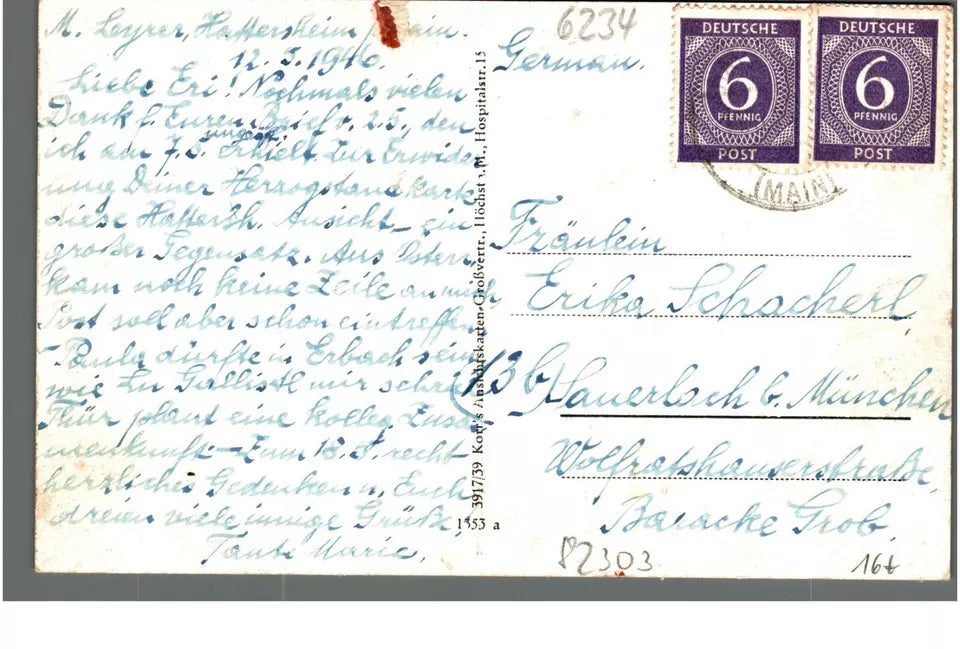 M. Leyrer, Hattersheim / Main.
12.5.1946.
Liebe Eri! Nochmals vielen
Dank f. Euren Brief v. 2.5., den
ich am 7.5. erhielt. Zur Erwider-
ung Deiner Herzogstandkarte
diese Hattersh. Ansicht – ein
großer Gegensatz. Aus Österr.
kam noch keine Zeile an mich
Post soll aber schon eintreffen
Paula dürfte in Erbach sein
wie Gallistl mir schrieb
Thür plant eine Kolleg. Zusa-
menkunft – Zum 18.5. recht
herzliches Gedenken u. Euch
dreien viele innige Grüße!
Tante Marie.
3917/39 Korr's Ansichtskarten-Großvertr., Höchst a.M., Hospitalstr. 15
1353 a
6234
German.
DEUTSCHE
6
PFENNIG
POST
DEUTSCHE
6
PFENNIG
POST
(MAIN)
Fräulein
Erika Schacherl
(13b)
b. München
Wolfratshauserstraße,
Baracke Grob.
82303
16t